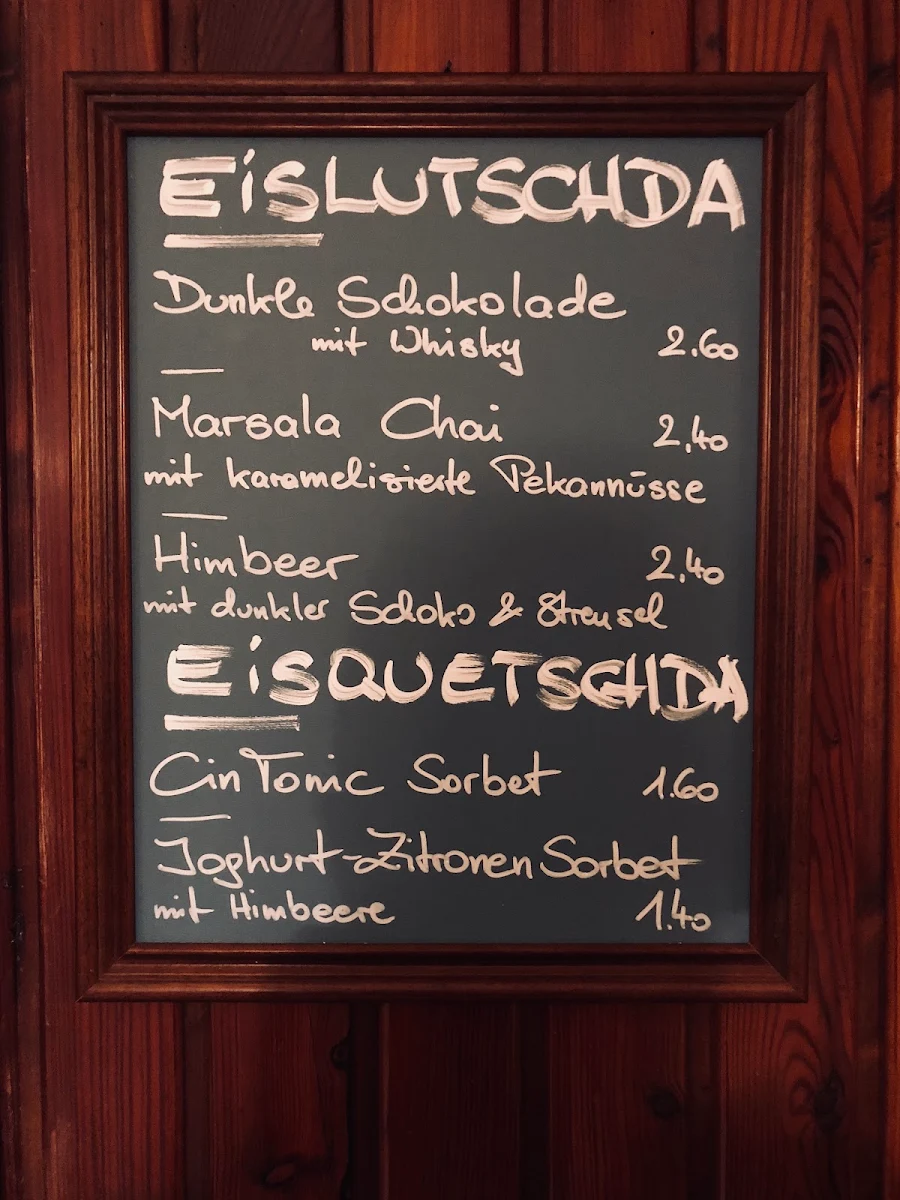 EiSLUTSCHDA
Dunkle Schokolade
mit Whisky 2.60
Marsala Chai 2.40
mit karamelisierte Pekannüsse
Himbeer 2.40
mit dunkler Schoko & Streusel
EiSQUETSCHDA
Gin Tonic Sorbet 1.60
Joghurt-Zitronen Sorbet
mit Himbeere 1.40